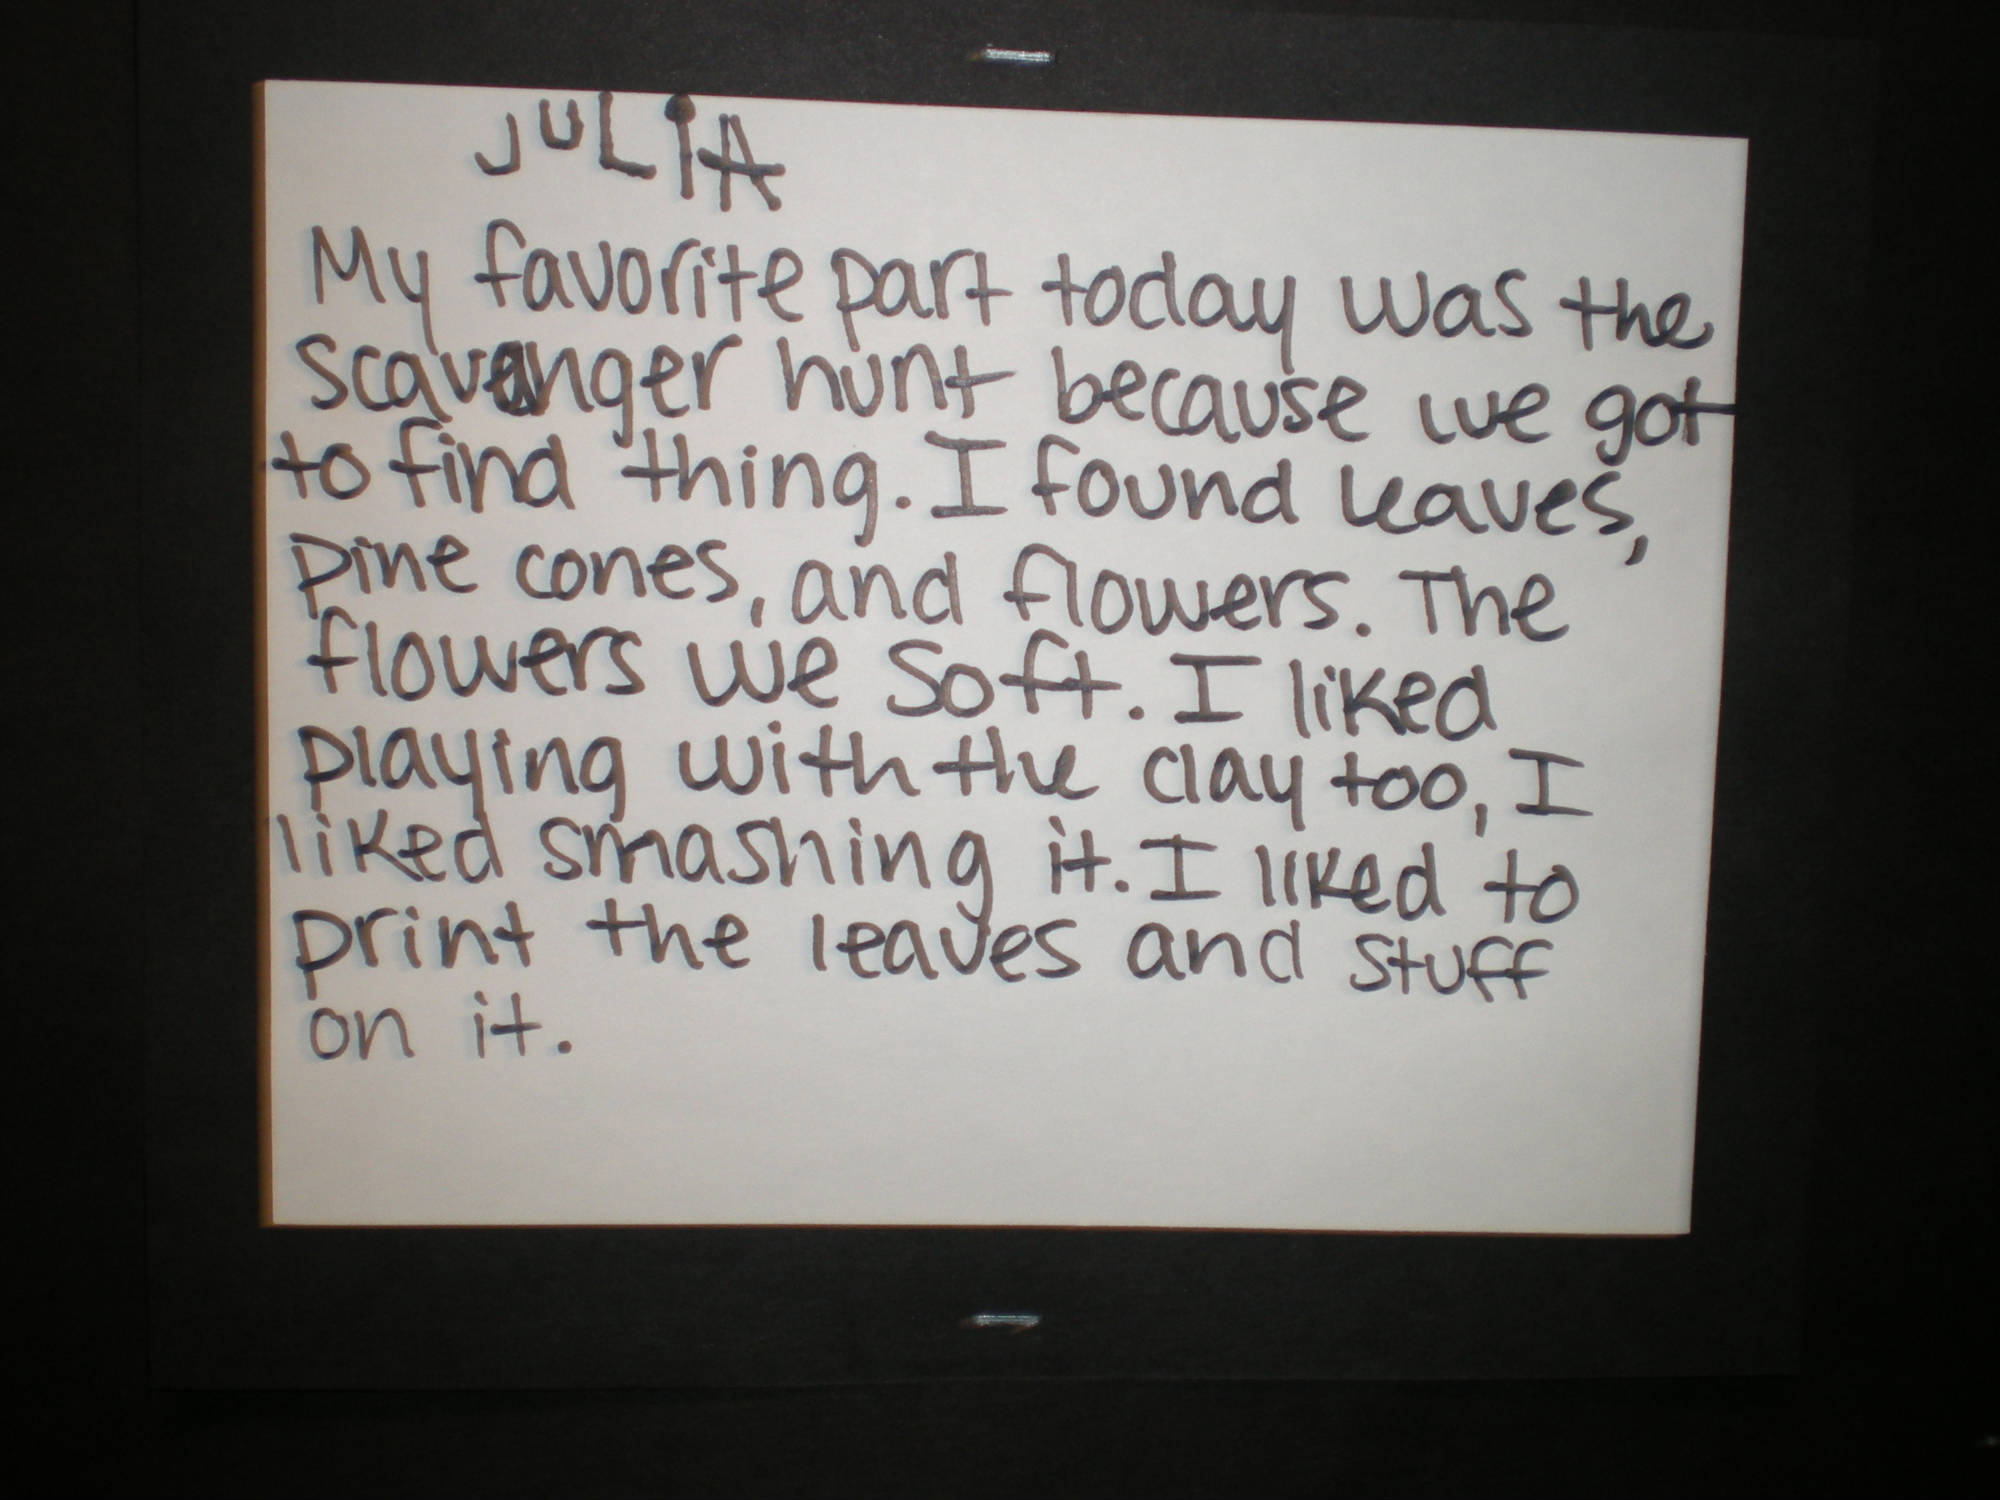 JULIA
My favorite part today was the
scavanger hunt because we got
to find thing. I found leaves,
pine cones, and flowers. The
flowers we soft. I liked
playing with the clay too, I
liked smashing it. I liked to
print the leaves and stuff
on it.